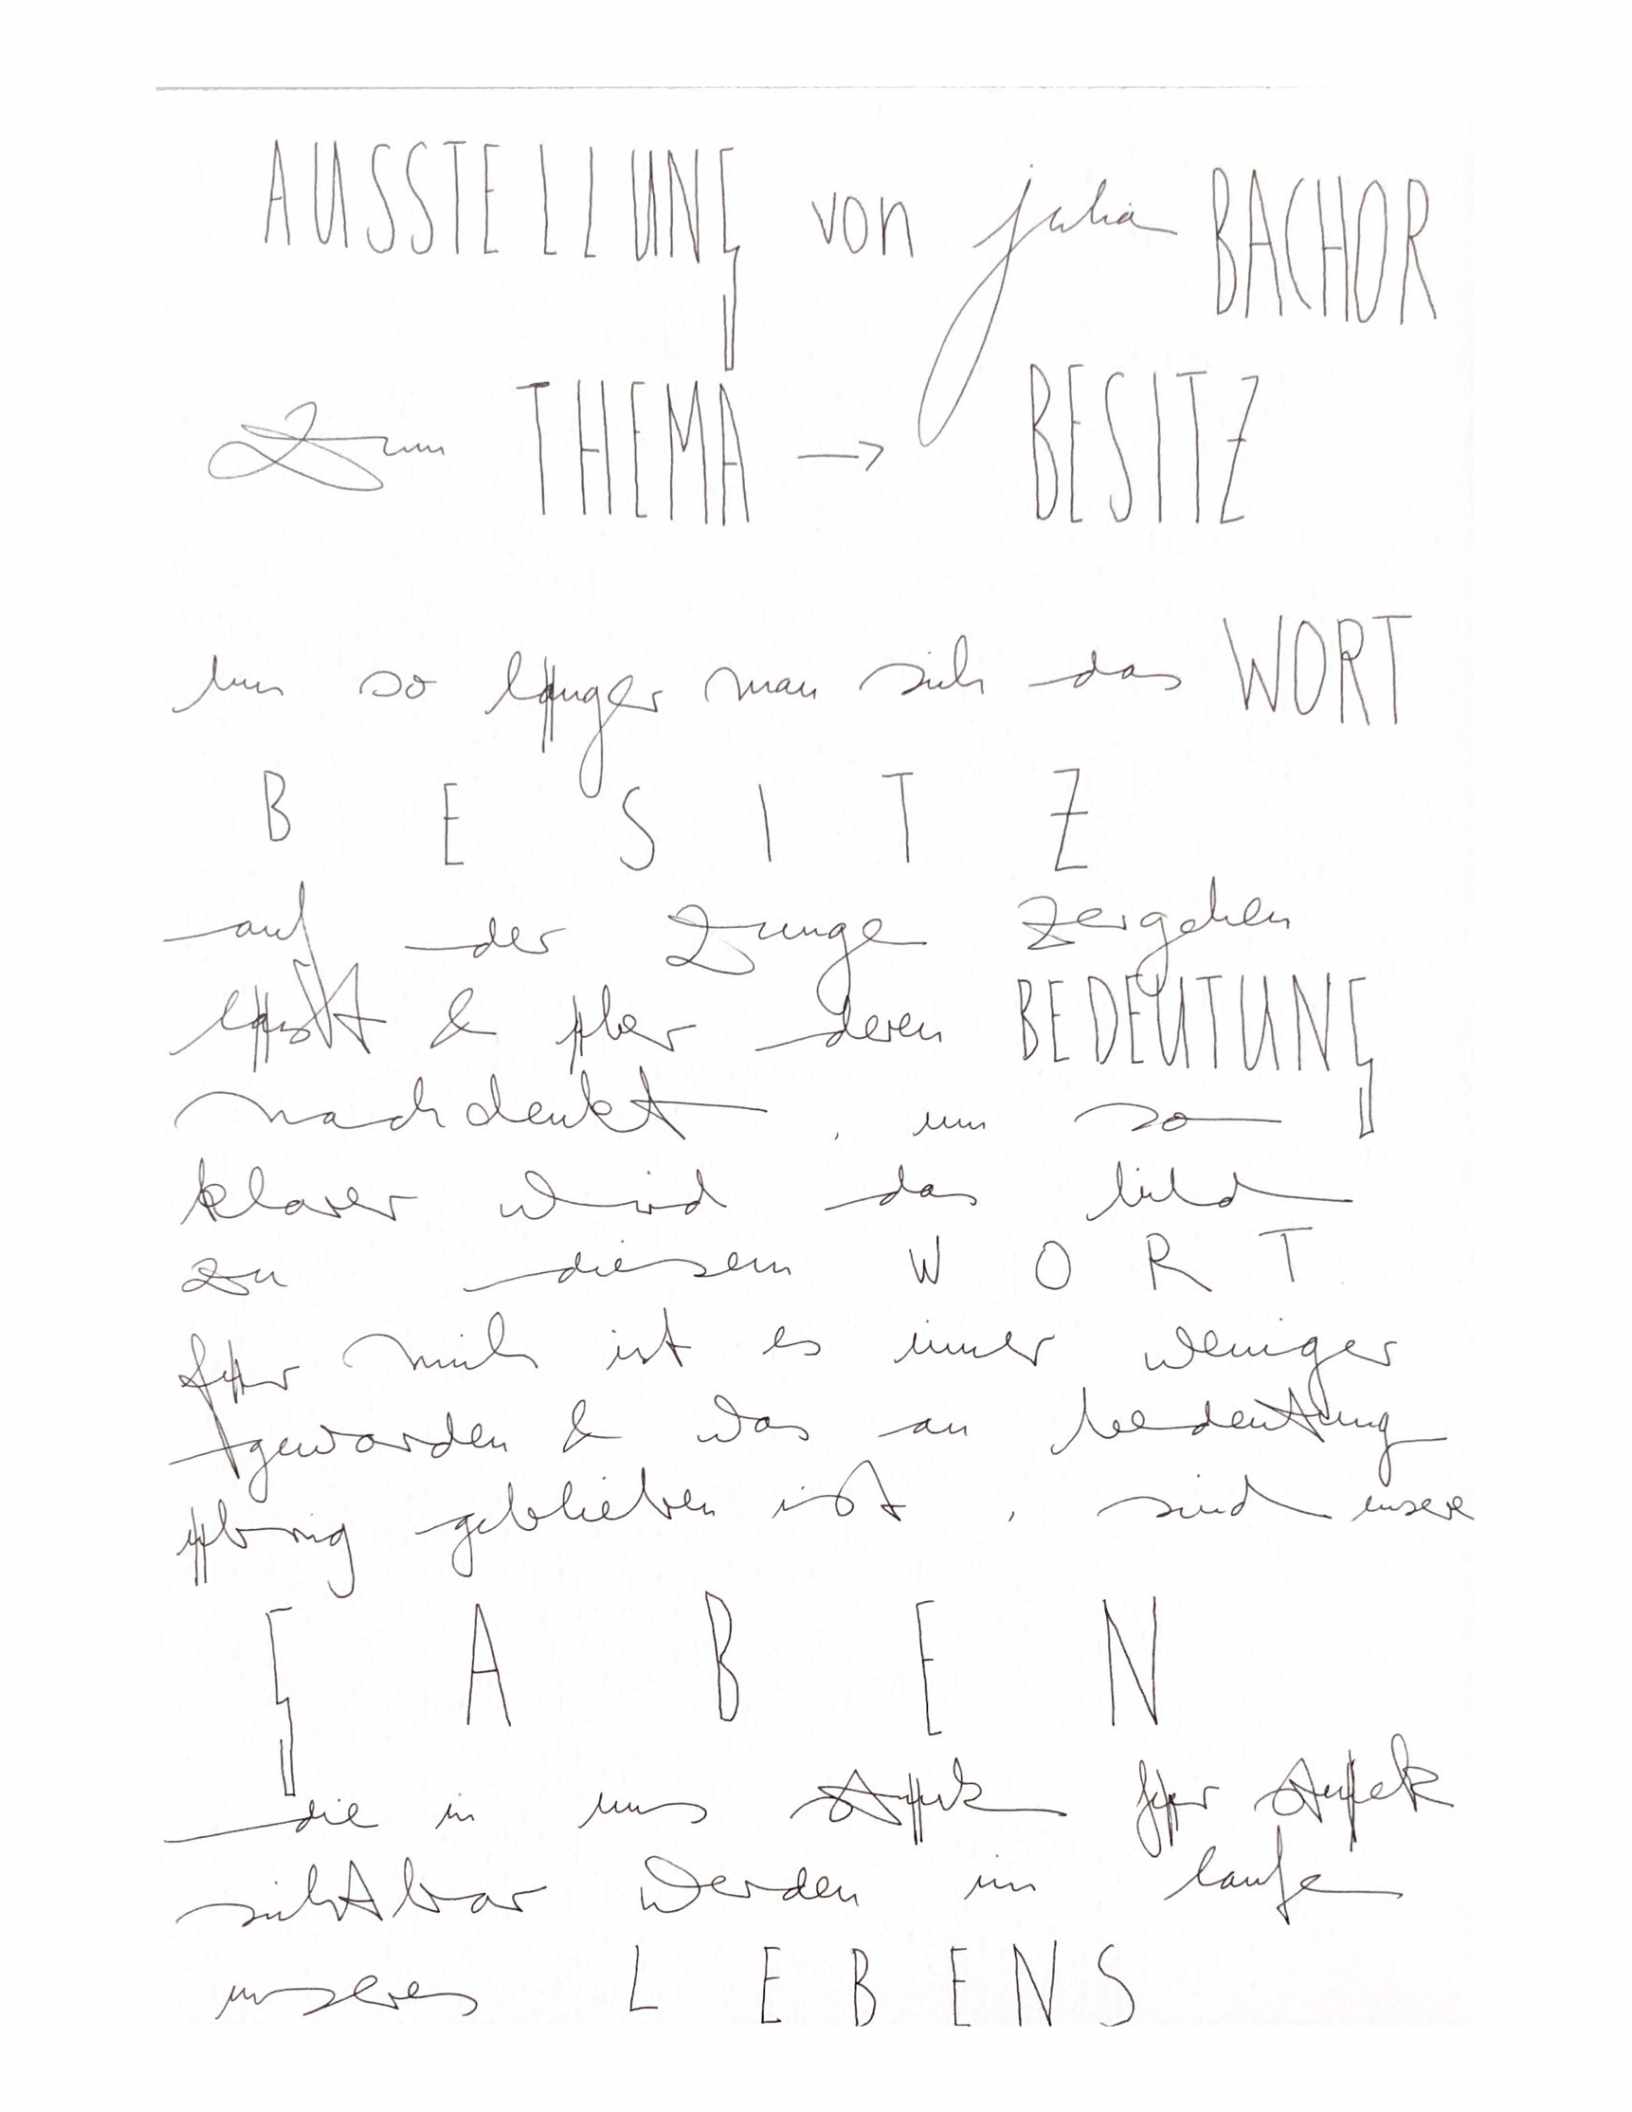 AUSSTELLUNG von julia BACHOR
zum THEMA → BESITZ
um so länger man sich das WORT
B E S I T Z
auf der zunge zergehen
lässt & über deren BEDEUTUNG
nachdenkt, um so
klarer wird das bild
zu diesem W O R T
für mich ist es immer weniger
geworden & was an bedeutung
übrig geblieben ist, sind unsere
G A B E N
die in uns stück für stück
sichtbar werden im laufe
unseres L E B E N S